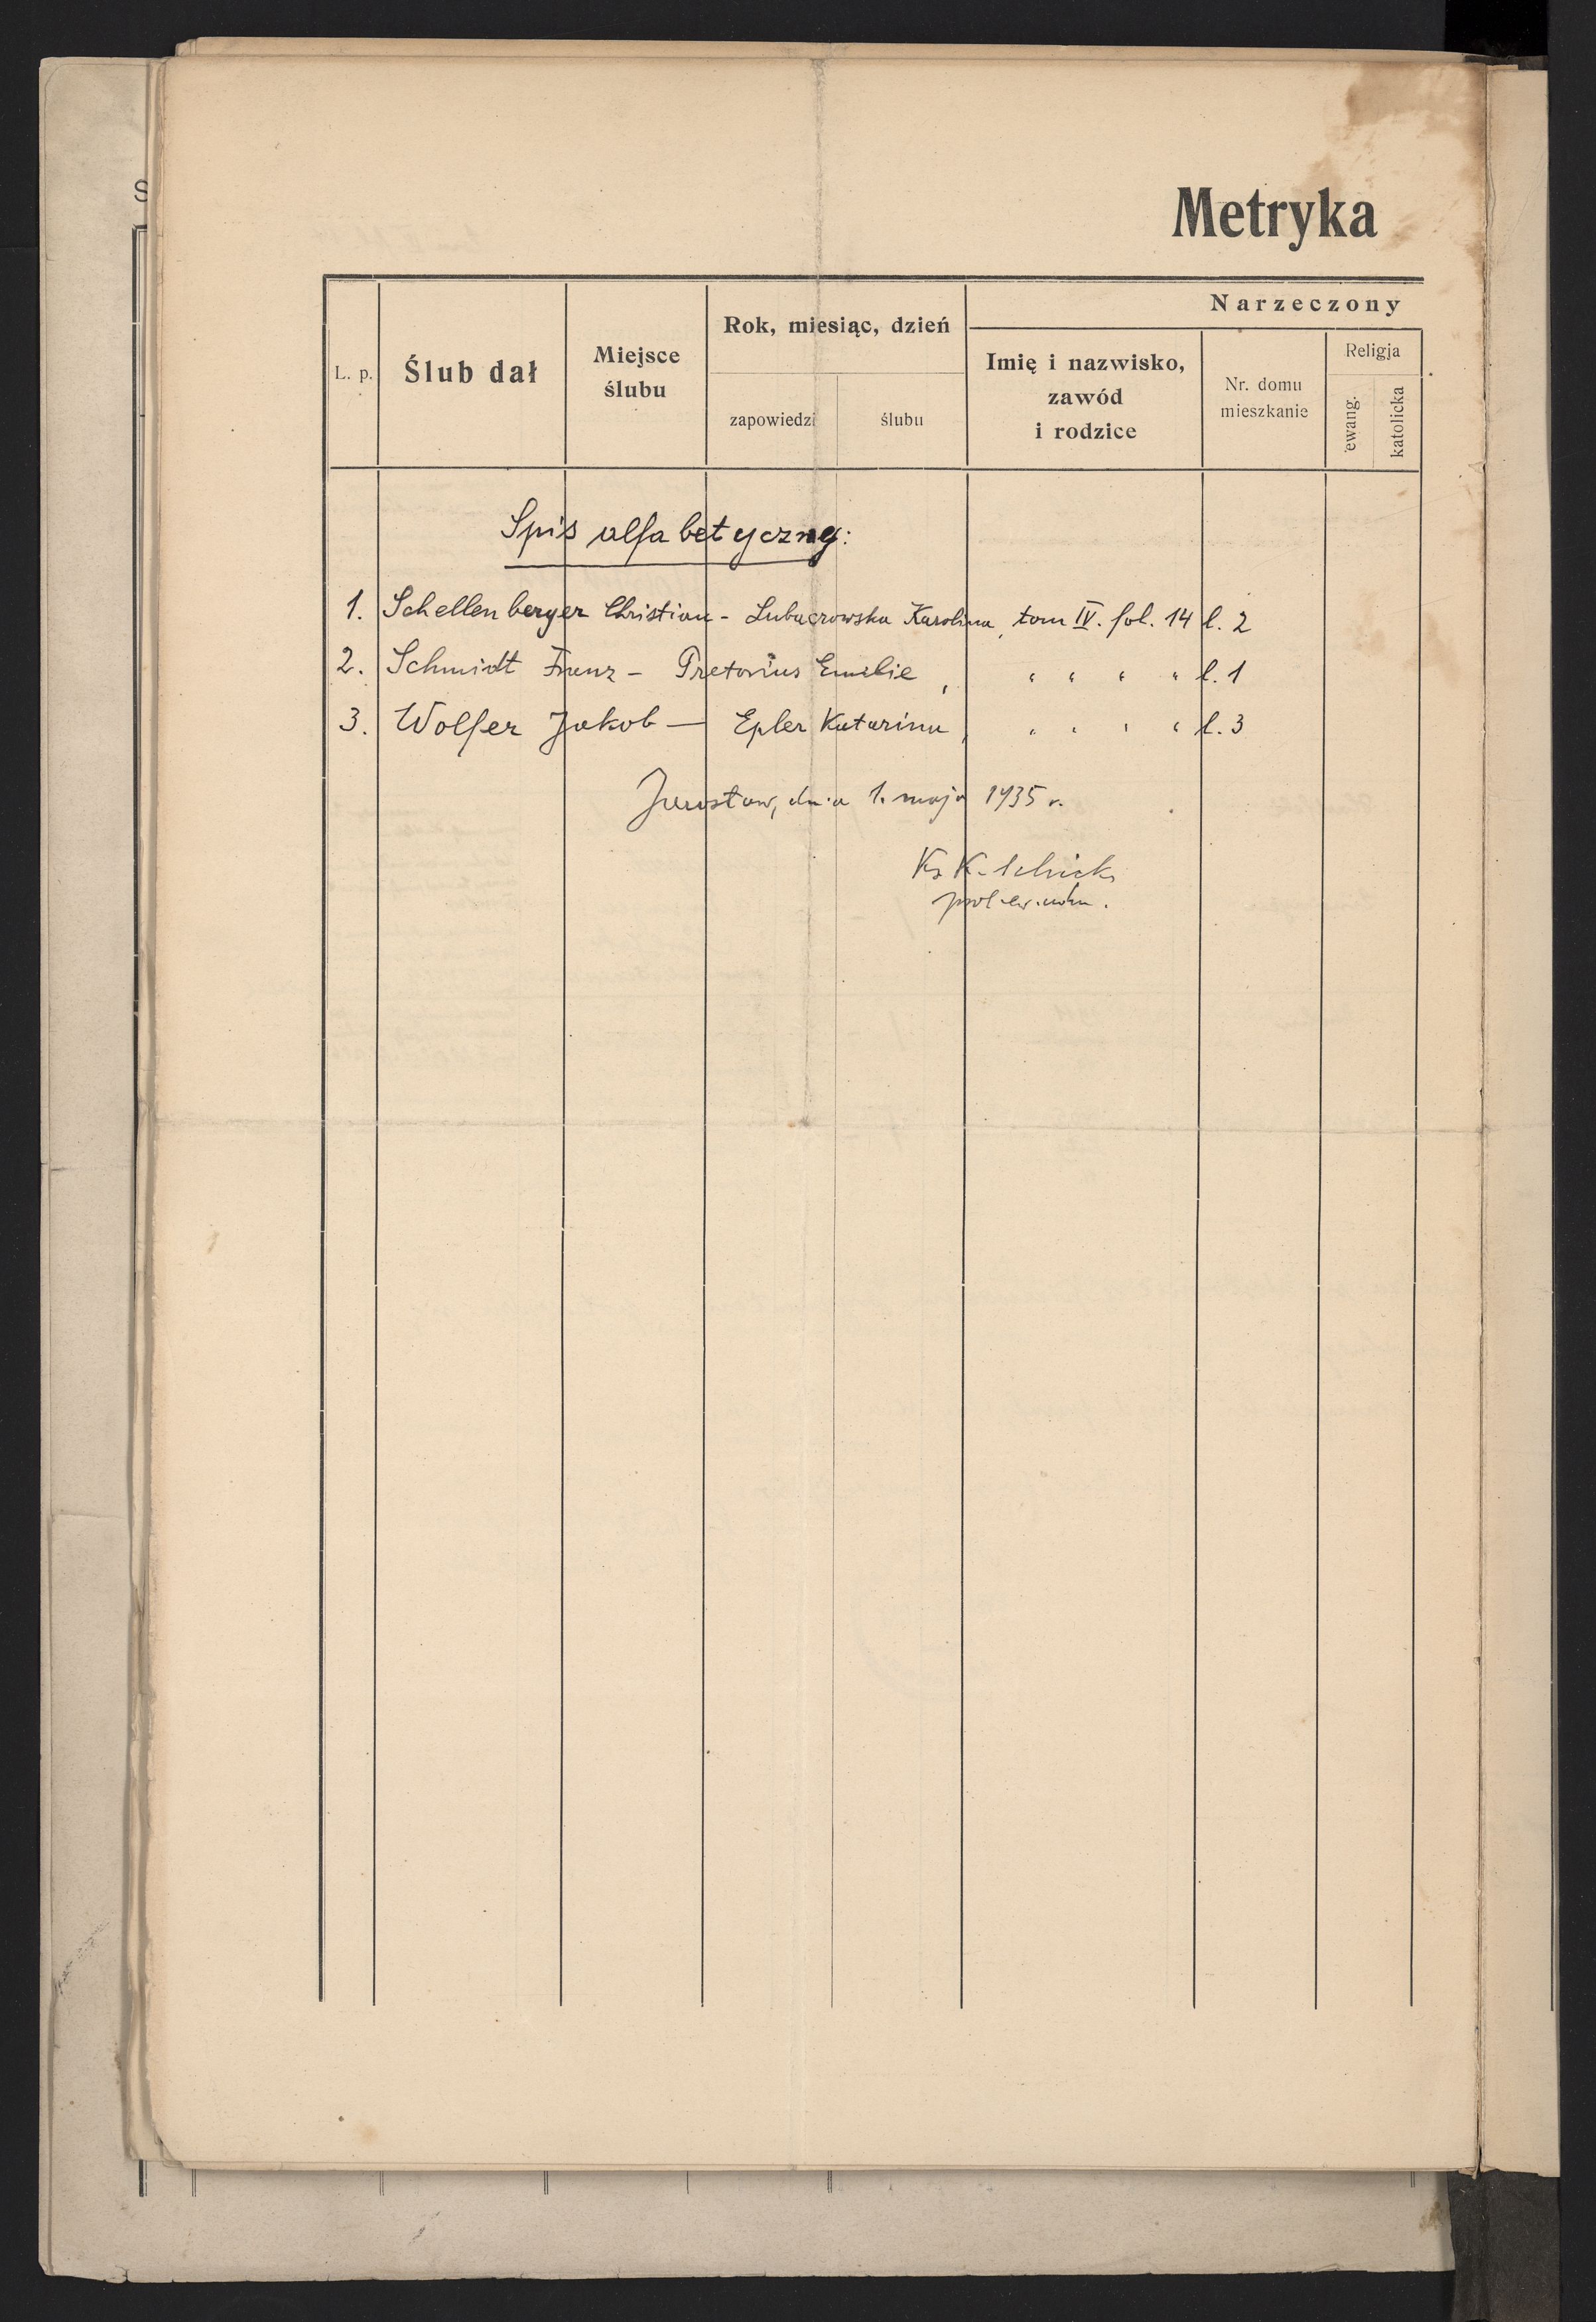 S
Metryka
L. p.
Ślub dał
Miejsce
ślubu
Rok, miesiąc, dzień
zapowiedzi
ślubu
Narzeczony
Imię i nazwisko,
zawód
i rodzice
Nr. domu
mieszkanie
Religja
ewang.
katolicka
Spis alfabetyczny:
1. Schellenberger Christian - Lubaczowska Karolina, tom IV. fol. 14 l. 2
2. Schmidt Franz - Pretorius Emilie, " " " " l. 1
3. Wolfer Jakob — Epler Katarina, " " " " l. 3
Jarosław, dnia 1. maja 1935 r.
Ks. K.